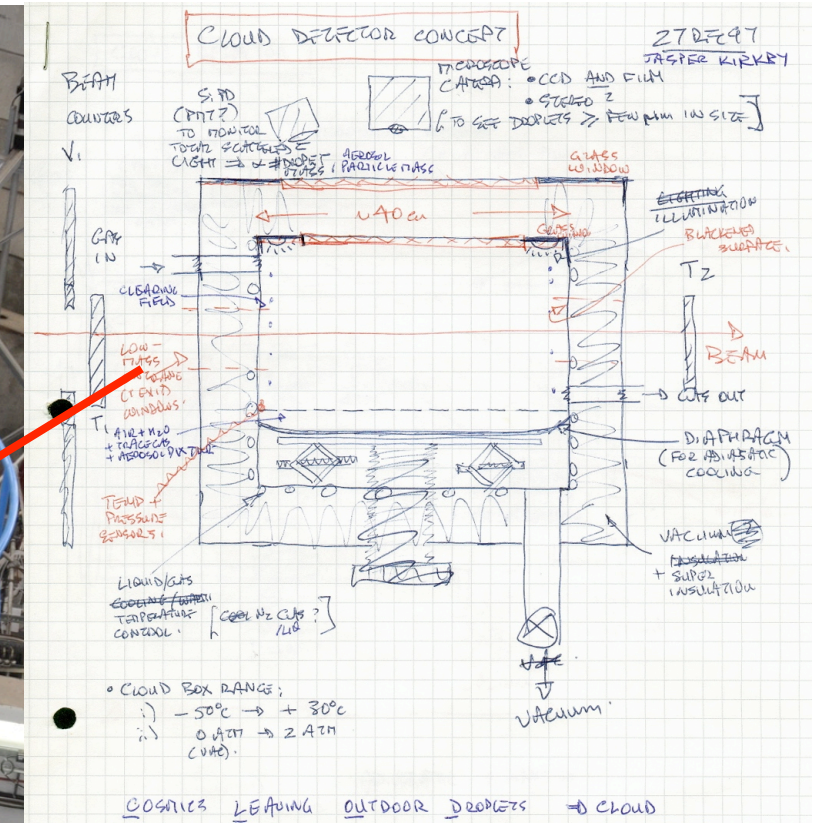 CLOUD DETECTOR CONCEPT
27 DEC 97
JASPER KIRKBY
BEAM
COUNTERS
V₁
Si PD
(PMT?)
TO MONITOR
TOTAL SCATTERED
LIGHT ⇒ ∝ # DROPLETS,
AEROSOL
PARTICLE MASS
MICROSCOPE
CAMERA: • CCD AND FILM
• STEREO ?
[TO SEE DROPLETS ≥ FEW µm IN SIZE]
GLASS
WINDOW
~40 cm
LIGHTING
ILLUMINATION
BLACKENED
SURFACE.
GAS
IN
CLEARING
FIELD
T₂
BEAM
LOW-
MASS
WINDOWS.
T₁
AIR + H2O
+ TRACE GAS
+ AEROSOL MIXTURE
→ GAS OUT
DIAPHRAGM
(FOR ADIABATIC
COOLING)
TEMP +
PRESSURE
SENSORS.
VACUUM
INSULATION
+ SUPER
INSULATION
LIQUID/GAS
COOLING/WARM
TEMPERATURE
CONTROL.
[COOL N2 GAS ?
/LIQ]
VACUUM.
• CLOUD BOX RANGE:
i) -50°C → +30°C
ii) 0 ATM → 2 ATM
(VAC).
COSMICS LEAVING OUTDOOR DROPLETS ⇒ CLOUD